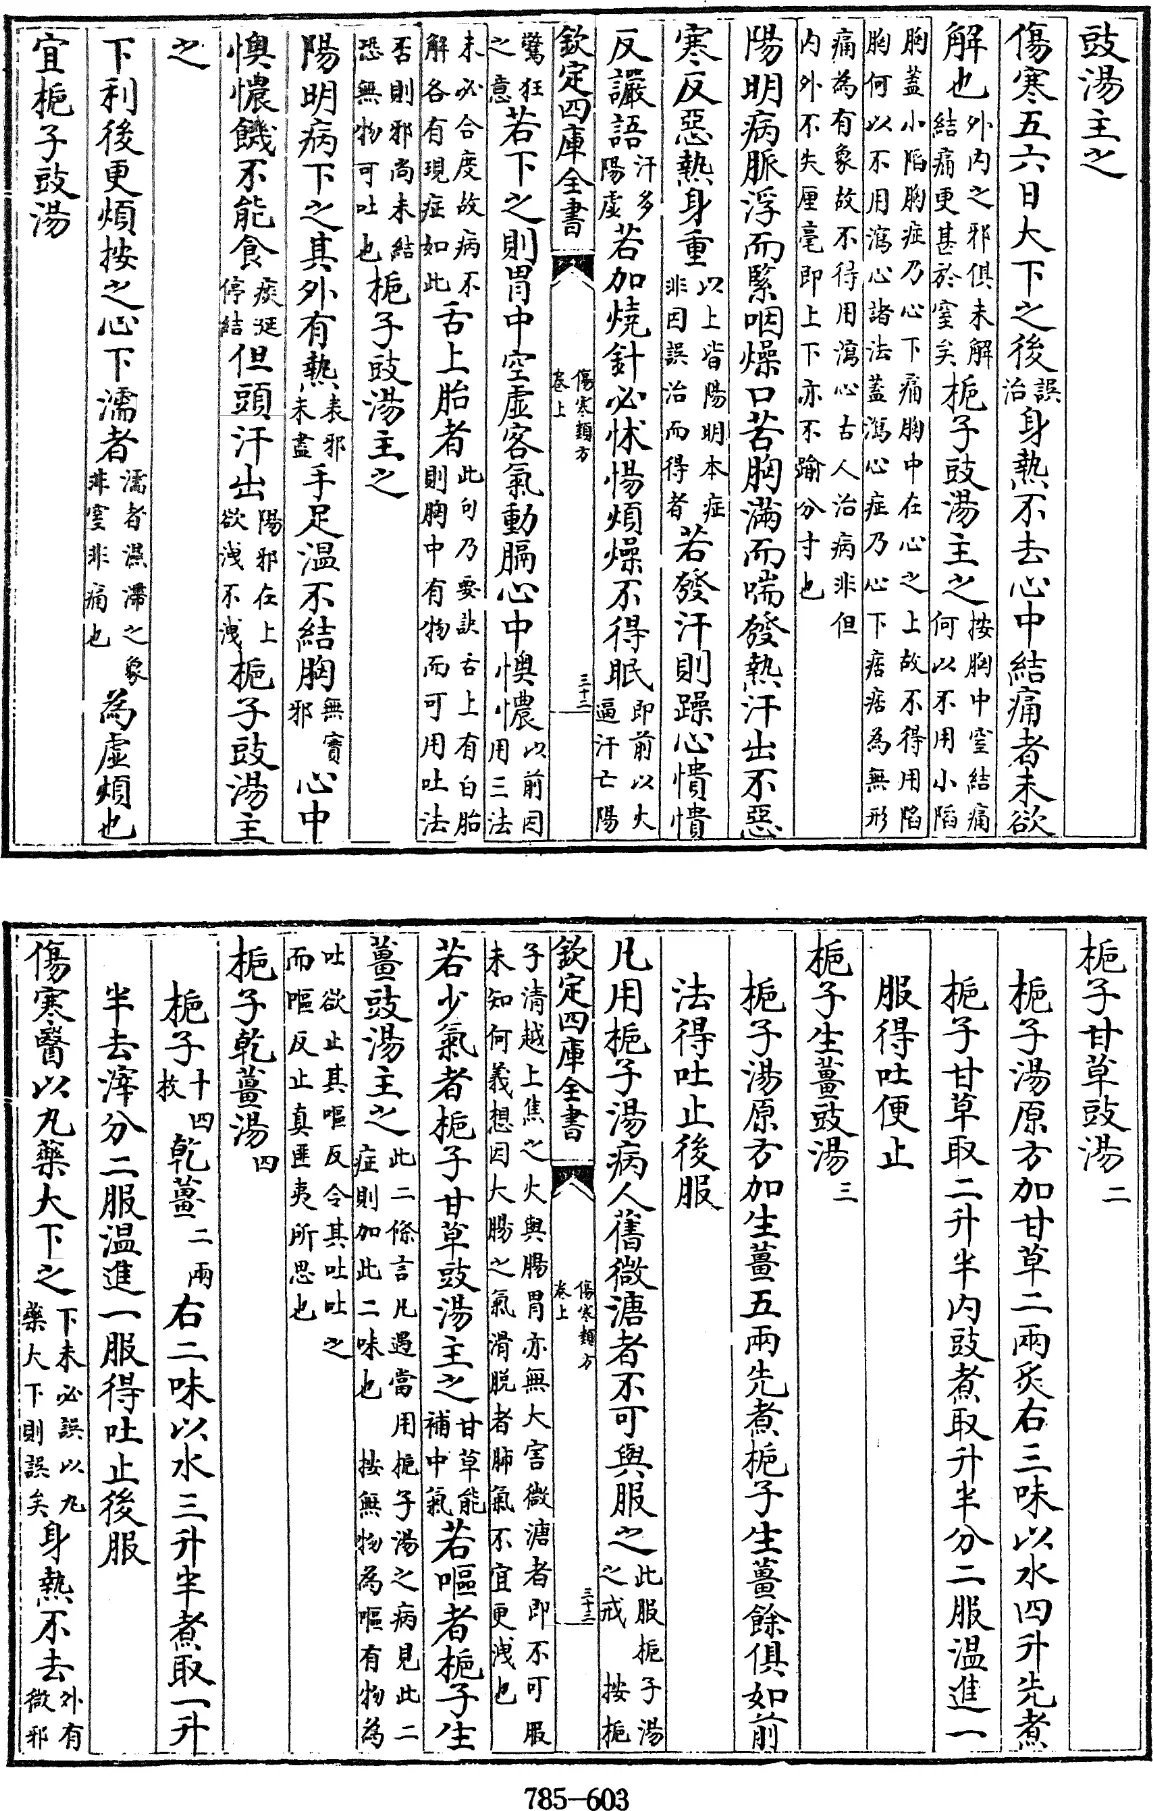 豉湯主之
傷寒五六日大下之後誤治身熱不去心中結痛者未欲
解也外内之邪俱未解結痛更甚於窒矣梔子豉湯主之按胸中窒結痛何以不用小陷
胸蓋小陷胸症乃心下痛胸中在心之上故不得用陷
胸何以不用瀉心諸法蓋瀉心症乃心下痞痞為無形
痛為有象故不得用瀉心古人治病非但
内外不失厘毫即上下亦不踰分寸也
陽明病脈浮而緊咽燥口苦胸滿而喘發熱汗出不惡
寒反惡熱身重以上皆陽明本症非因誤治而得者若發汗則躁心憒憒
反讝語汗多陽虛若加燒針必怵惕煩燥不得眠即前以火逼汗亡陽
欽定四庫全書
傷寒類方
卷上
三十二
驚狂之意若下之則胃中空虛客氣動膈心中懊憹以前因用三法
未必合度故病不解各有現症如此舌上胎者此句乃要訣舌上有白胎則胸中有物而可用吐法
否則邪尚未結恐無物可吐也梔子豉湯主之
陽明病下之其外有熱表邪未盡手足溫不結胸無實邪心中
懊憹饑不能食痰涎停結但頭汗出陽邪在上欲洩不洩梔子豉湯主
之
下利後更煩按之心下濡者濡者濕滯之象非窒非痛也為虛煩也
宜梔子豉湯
梔子甘草豉湯二
梔子湯原方加甘草二兩炙右三味以水四升先煮
梔子甘草取二升半内豉煮取升半分二服溫進一
服得吐便止
梔子生薑豉湯三
梔子湯原方加生薑五兩先煮梔子生薑餘俱如前
法得吐止後服
凡用梔子湯病人舊微溏者不可與服之此服梔子湯之戒 按梔
欽定四庫全書
傷寒類方
卷上
三十三
子清越上焦之火與腸胃亦無大害微溏者即不可服
未知何義想因大腸之氣滑脫者肺氣不宜更洩也
若少氣者梔子甘草豉湯主之甘草能補中氣若嘔者梔子生
薑豉湯主之此二條言凡遇當用梔子湯之病見此二症則加此二味也 按無物為嘔有物為
吐欲止其嘔反令其吐吐之
而嘔反止真匪夷所思也
梔子乾薑湯四
梔子十四枚乾薑二兩右二味以水三升半煮取一升
半去滓分二服溫進一服得吐止後服
傷寒醫以丸藥大下之下未必誤以丸藥大下則誤矣身熱不去外有微邪
785–603